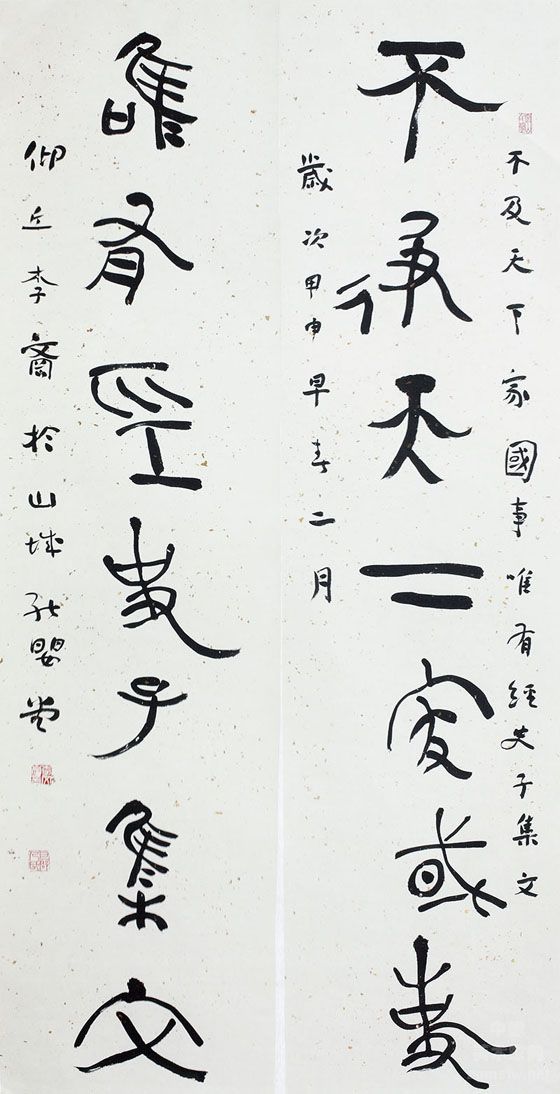 不及天下家國事唯有經史子集文
不及天下家國事
歲次甲申早春二月
唯有經史子集文
仰丘李於山城